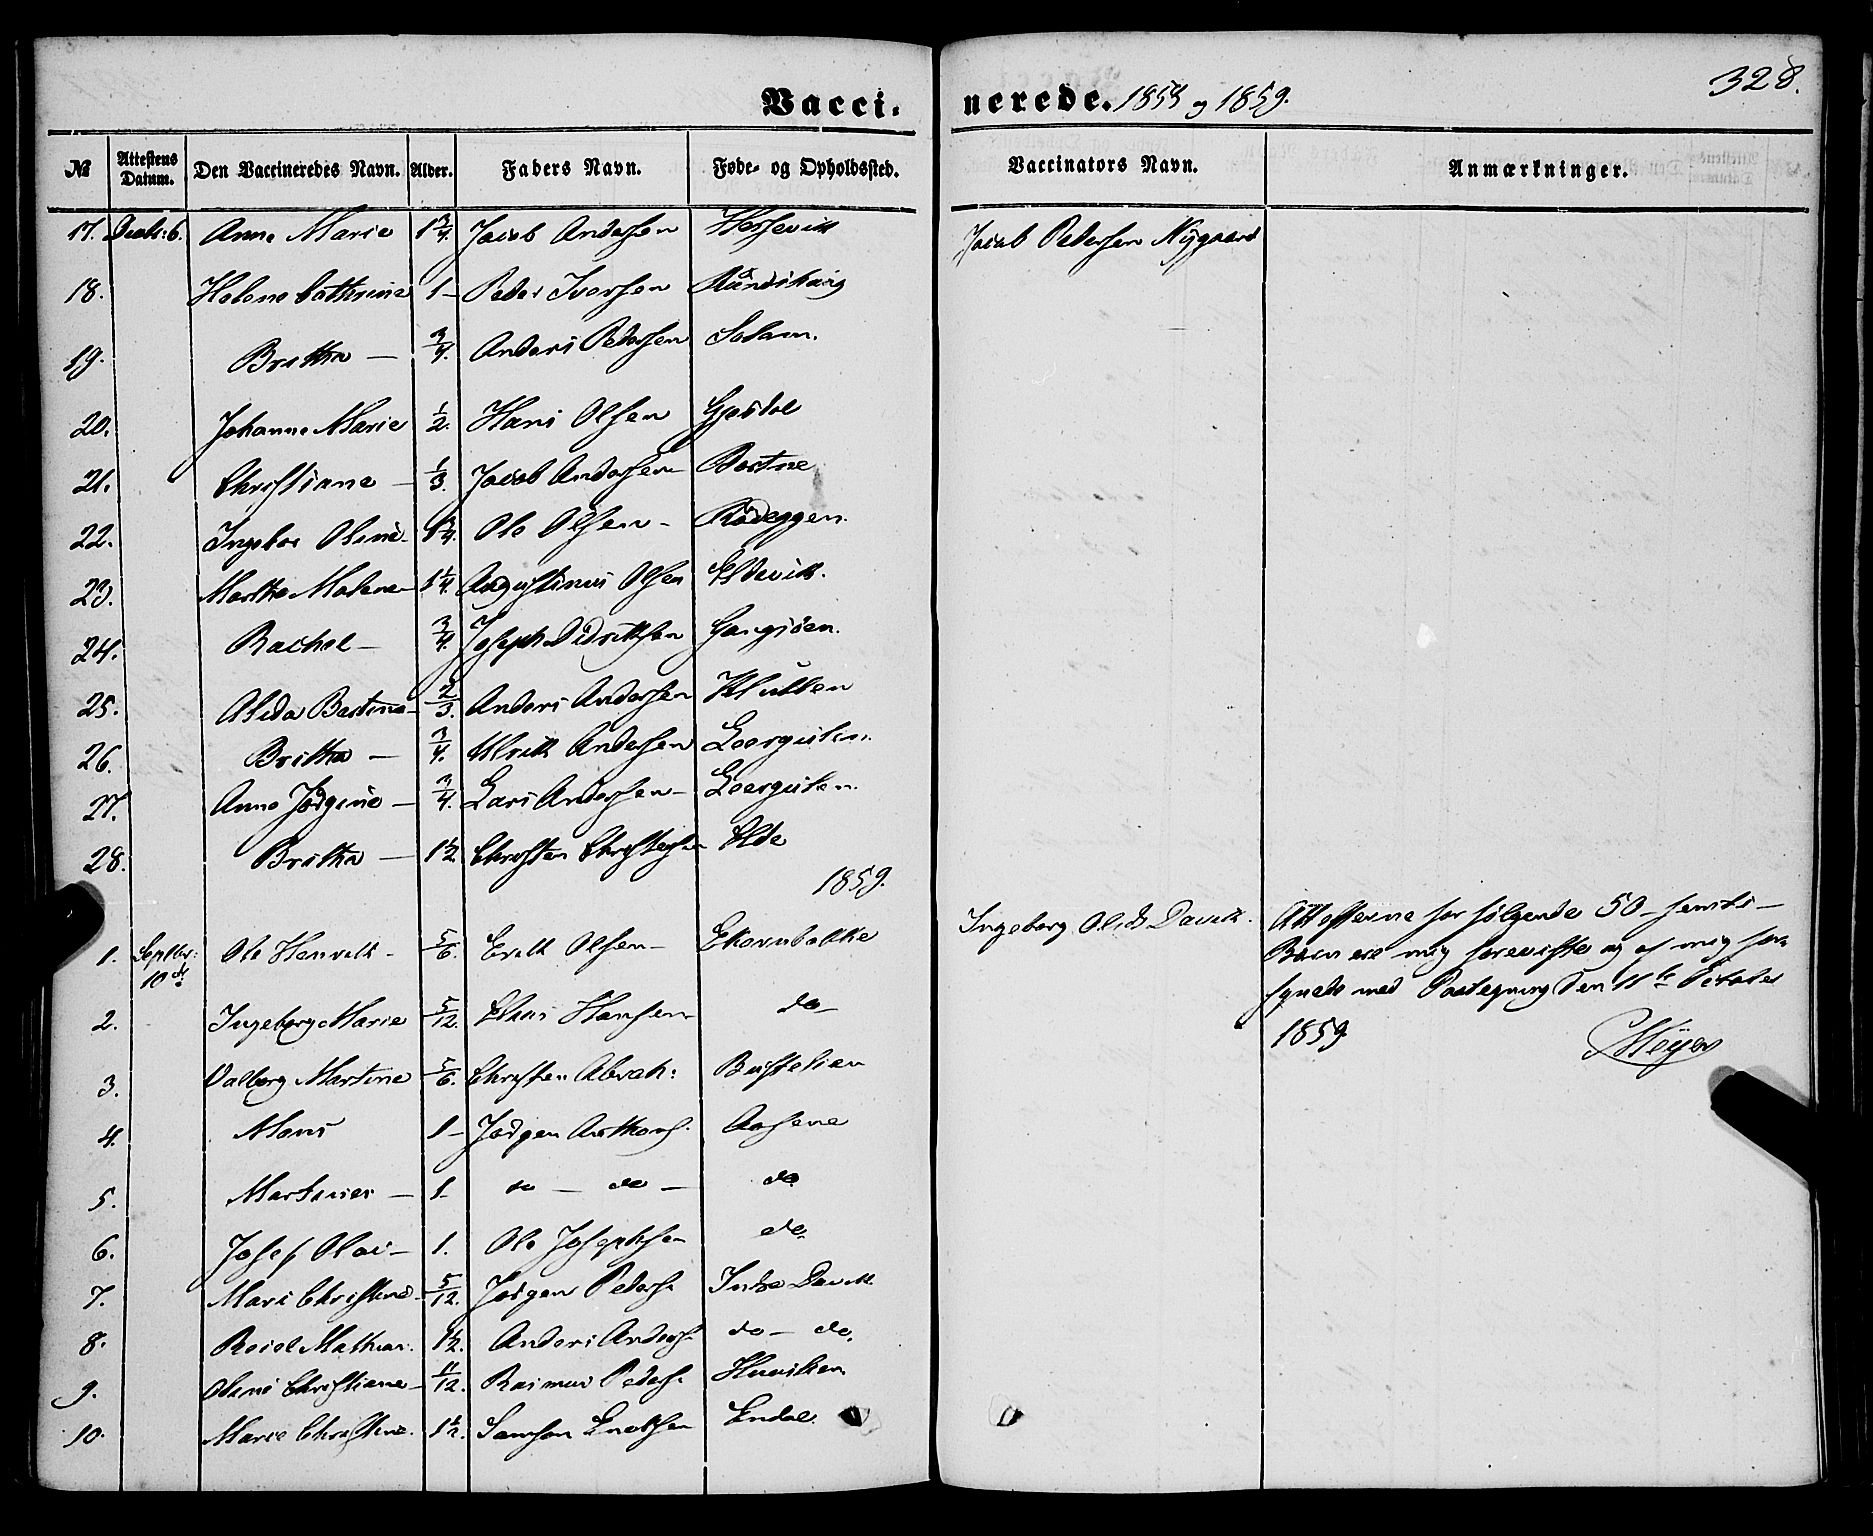 328.
Vacci- nerede. 1858 og 1859.
№ Attestens Datum. Den Vaccineredes Navn. Alder. Faders Navn. Føde- og Opholdssted. Vaccinators Navn. Anmærkninger.
17. Decbr: 6. Anne Marie 1 3/4. Jacob Andersen Hessevik Jacob Pedersen Nygaard
18. Helene Cathrine 1 – Peder Iversen
19. Britha – 3/4. Anders Pedersen
20. Johanne Marie 1/2. Hans Olsen Gjesdal
21. Christiane – 1/3. Jacob Andersen
22. Ole Olsen – Rødeggen.
23. Martha Malene – 1 1/4. Augustinus Olsen Eldevik.
24. Rachel – 3/4. Joseph Didriksen
25. Alida Bertine – 2/3. Anders Andersen
26. Britha – 3/4. Ulrik Andersen Leergulen.
27. Anne Jørgine – 3/4. Lars Andersen – Leergulen.
28. Britha – 1 1/2 Christen Elde
1859.
1. Septbr: 10de Ole Henrik – 5/6. Erik Olsen – Ekornbakke Ingeborg Davik. Attesterne for følgende 50 –
Børn ere mig foreviste og af mig for-
synede med Paategning den 11te October
1859. Meyer
2. Ingeborg Marie 5/12. Elias Hansen do –
3. Valborg Martine 5/6. Christen Abrah:
4. Mons 1 – Jørgen Aasene
5. Martinus – 1 – do – do – do
6. Josef Olai – 1. Ole Josephsen do.
7. Mari Christine 5/12. Jørgen Peders. Indre Davik
8. 1 1/2. Anders Anders. do – do.
9. Oline Christiane – 11/12. Rasmus Peders.
10. Marie Christine. 1 1/2. Samson Endal.